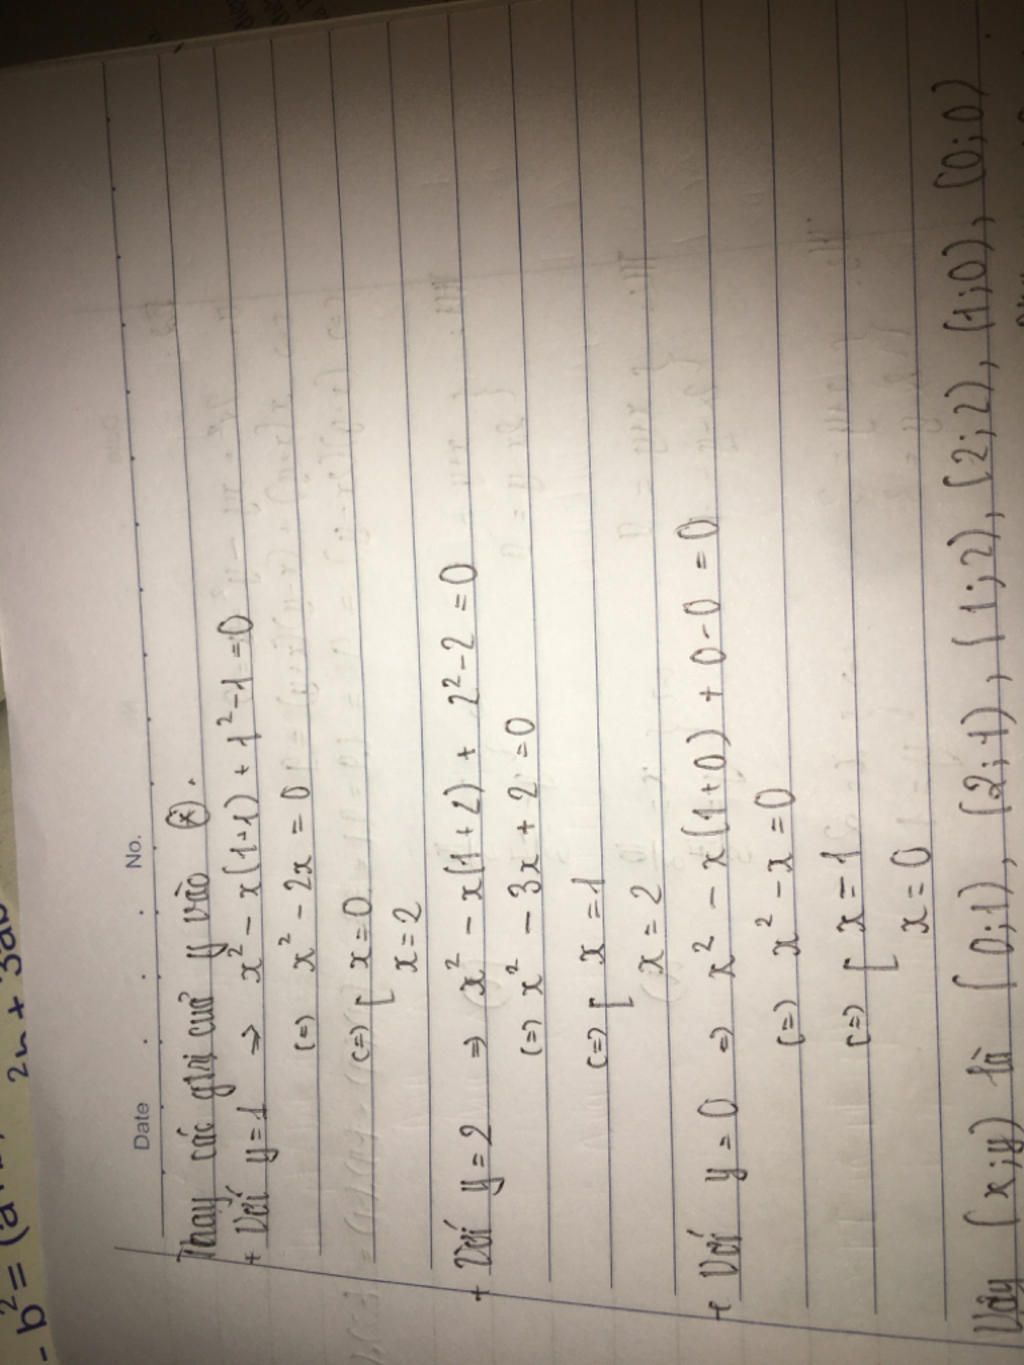 Date No.
Thay các giá trị của y vào (*).
+ Với y=1 => x² - x(1+1) + 1² - 1 = 0
(=) x² - 2x = 0
(=) [ x=0
x=2
+ Với y=2 => x² - x(1+2) + 2² - 2 = 0
(=) x² - 3x + 2 = 0
(=) [ x=1
x=2
+ Với y=0 => x² - x(1+0) + 0 - 0 = 0
(=) x² - x = 0
(=) [ x=1
x=0
Vậy (x;y) là (0;1), (2;1), (1;2), (2;2), (1;0), (0;0)